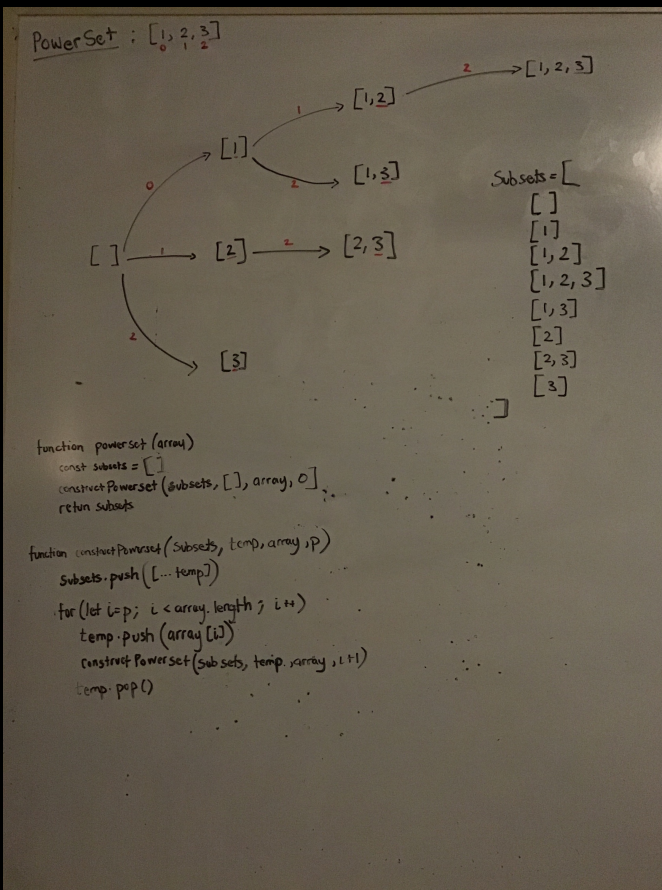 PowerSet : [1, 2, 3]
0 1 2
[1, 2, 3]
2
[1,2]
1
[1]
0
[1,3]
2
[ ]
1
[2]
2
[2,3]
2
[3]
Subsets = [
[ ]
[1]
[1,2]
[1, 2, 3]
[1,3]
[2]
[2,3]
[3]
]
function powerset (array)
const subsets = [ ]
constructPowerset (subsets, [ ], array, 0]
retun subsets
function constructPowerset (subsets, temp, array, p)
Subsets.push ([... temp])
for (let i=p; i < array.length ; i++)
temp.push (array [i])
constructPowerset (subsets, temp, array, i+1)
temp.pop ()